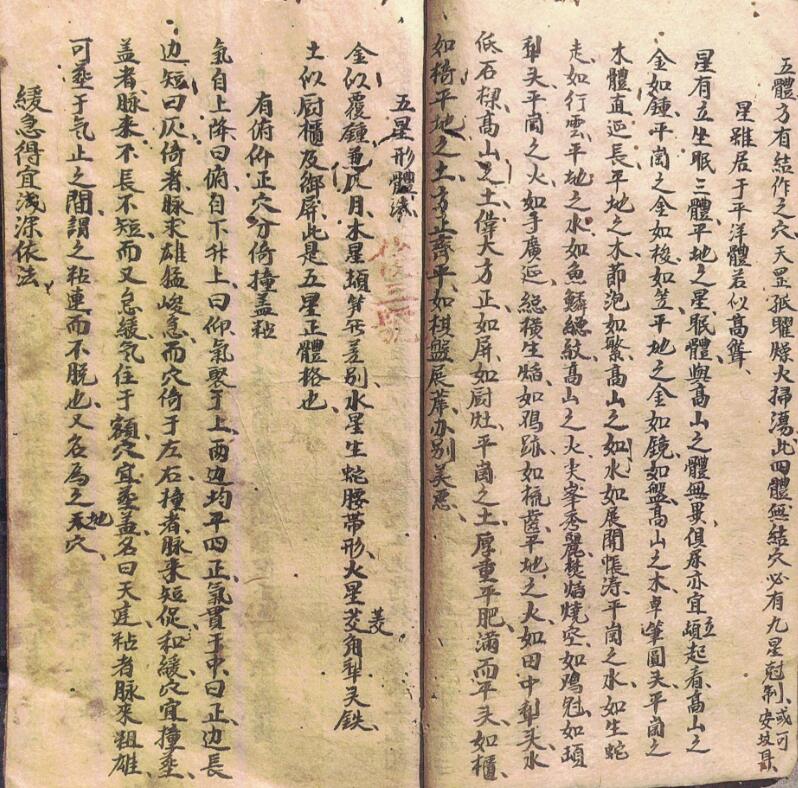 五體方有結作之穴天罡孤曜燥火掃蕩此四體無結穴必有九星尅制或可安坟
星雖居于平洋體若似高聳
星有立坐眠三體平地之星眠體與高山之體無異俱尿亦宜立頓起看高山之
金如鍾平崗之金如梭如笠平地之金如鏡如盤高山之木卓筆圓夫平崗之
木體直延長平地之木節泡如繁高山之水如展開帳濤平崗之水如生蛇
走如行雲平地之水如魚鱗纙紋高山之火尖峯秀麗焚焰燒空如鸡冠如頭
犁头平崗之火如手廣延縂橫生焰如鴉跡如梳齒平地之火如田中犁头水
低石樑高山之土偉大方正如屏如厨灶平崗之土厚重平肥滿而平头如櫃
如椅平地之土方正齊平如棋盤展蓆亦别美惡
五星形體
金似覆鍾兼仄月木星頓笋無差别水星生蛇腰帶形火星菱角犁头鉄
土似厨櫃及御屏此是五星正體格也
有俯仰正穴分倚撞盖粘
氣自上降曰俯自下升上曰仰氣聚于上兩边均平四正氣貫于中曰正边長
边短曰仄倚者脉来雄猛峻急而穴倚于左右撞者脉来短促和緩穴宜撞塟
盖者脉来不長不短而又急緩气住于額穴宜塟盖名曰天莚粘者脉来粗雄
可塟于气止之間謂之粘連而不脱也又名為之地穴
緩急得宜浅深依法